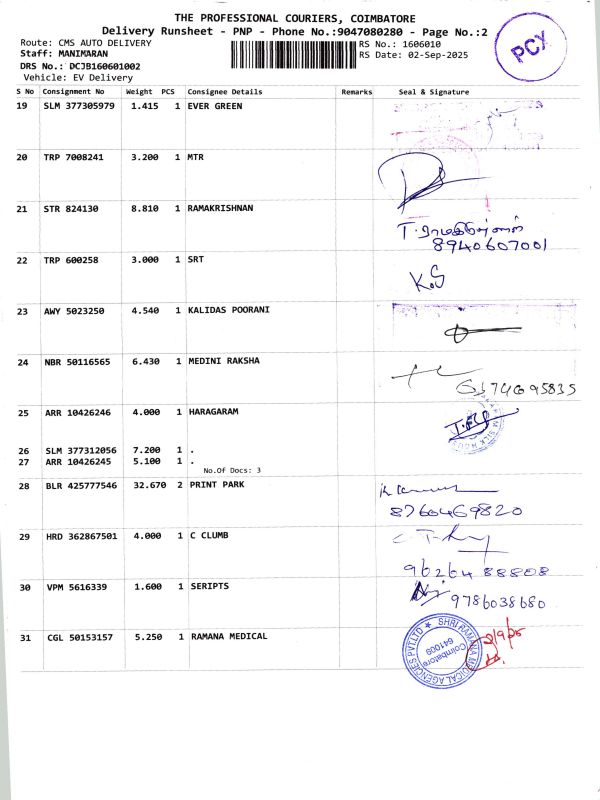 THE PROFESSIONAL COURIERS, COIMBATORE
Delivery Runsheet - PNP - Phone No.:9047080280 - Page No.:2
Route: CMS AUTO DELIVERY
RS No.: 1606010
Staff: MANIMARAN
RS Date: 02-Sep-2025
DRS No.: DCJB160601002
Vehicle: EV Delivery
PCX
S No Consignment No Weight PCS Consignee Details Remarks Seal & Signature
19 SLM 377305979 1.415 1 EVER GREEN
20 TRP 7008241 3.200 1 MTR
21 STR 824130 8.810 1 RAMAKRISHNAN
8940607001
22 TRP 600258 3.000 1 SRT K.S
23 AWY 5023250 4.540 1 KALIDAS POORANI
24 NBR 50116565 6.430 1 MEDINI RAKSHA
25 ARR 10426246 4.000 1 HARAGARAM
26 SLM 377312056 7.200 1 .
27 ARR 10426245 5.100 1 .
No.Of Docs: 3
28 BLR 425777546 32.670 2 PRINT PARK
8760469820
29 HRD 362867501 4.000 1 C CLUMB
9626488808
30 VPM 5616339 1.600 1 SERIPTS
9786038680
31 CGL 50153157 5.250 1 RAMANA MEDICAL
SHRI RAMANA MEDICAL AGENCIES PVT.LTD
Coimbatore
641009
2/9/25